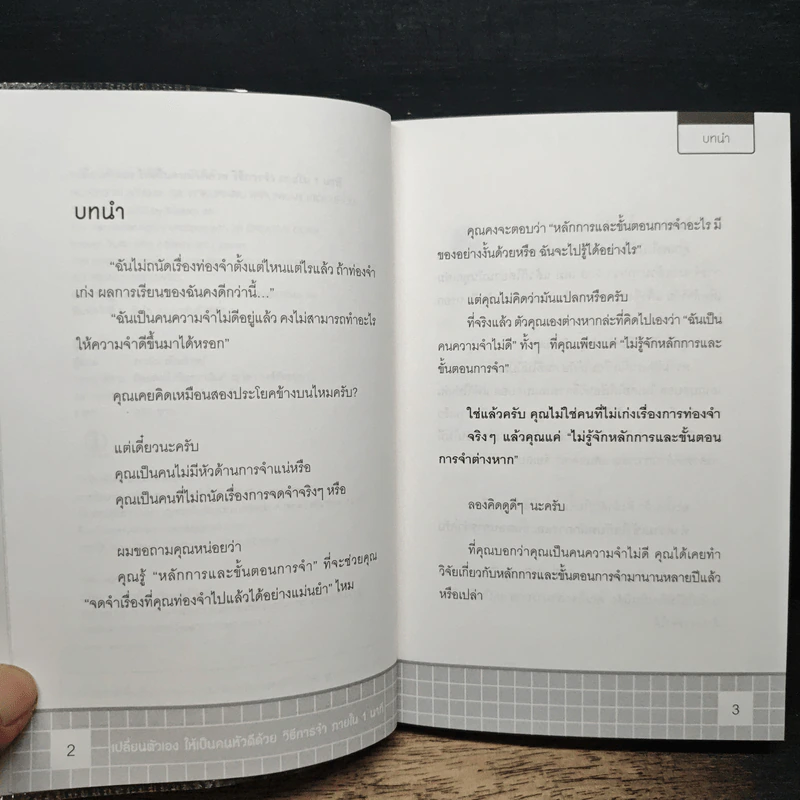 บทนำ
"ฉันไม่ถนัดเรื่องท่องจำตั้งแต่ไหนแต่ไรแล้ว ถ้าท่องจำ
เก่ง ผลการเรียนของฉันคงดีกว่านี้..."
"ฉันเป็นคนความจำไม่ดีอยู่แล้ว คงไม่สามารถทำอะไร
ให้ความจำดีขึ้นมาได้หรอก"
คุณเคยคิดเหมือนสองประโยคข้างบนไหมครับ?
แต่เดี๋ยวนะครับ
คุณเป็นคนไม่มีหัวด้านการจำแน่หรือ
คุณเป็นคนที่ไม่ถนัดเรื่องการจดจำจริงๆ หรือ
ผมขอถามคุณหน่อยว่า
คุณรู้ "หลักการและขั้นตอนการจำ" ที่จะช่วยคุณ
"จดจำเรื่องที่คุณท่องจำไปแล้วได้อย่างแม่นยำ" ไหม
2
เปลี่ยนตัวเอง ให้เป็นคนหัวดีด้วย วิธีการจำ ภายใน 1 นาที
บทนำ
คุณคงจะตอบว่า "หลักการและขั้นตอนการจำอะไร มี
ของอย่างงั้นด้วยหรือ ฉันจะไปรู้ได้อย่างไร"
แต่คุณไม่คิดว่ามันแปลกหรือครับ
ที่จริงแล้ว ตัวคุณเองต่างหากล่ะที่คิดไปเองว่า "ฉันเป็น
คนความจำไม่ดี" ทั้งๆ ที่คุณเพียงแค่ "ไม่รู้จักหลักการและ
ขั้นตอนการจำ"
ใช่แล้วครับ คุณไม่ใช่คนที่ไม่เก่งเรื่องการท่องจำ
จริงๆ แล้วคุณแค่ "ไม่รู้จักหลักการและขั้นตอน
การจำต่างหาก"
ลองคิดดูดีๆ นะครับ
ที่คุณบอกว่าคุณเป็นคนความจำไม่ดี คุณได้เคยทำ
วิจัยเกี่ยวกับหลักการและขั้นตอนการจำมานานหลายปีแล้ว
หรือเปล่า
3